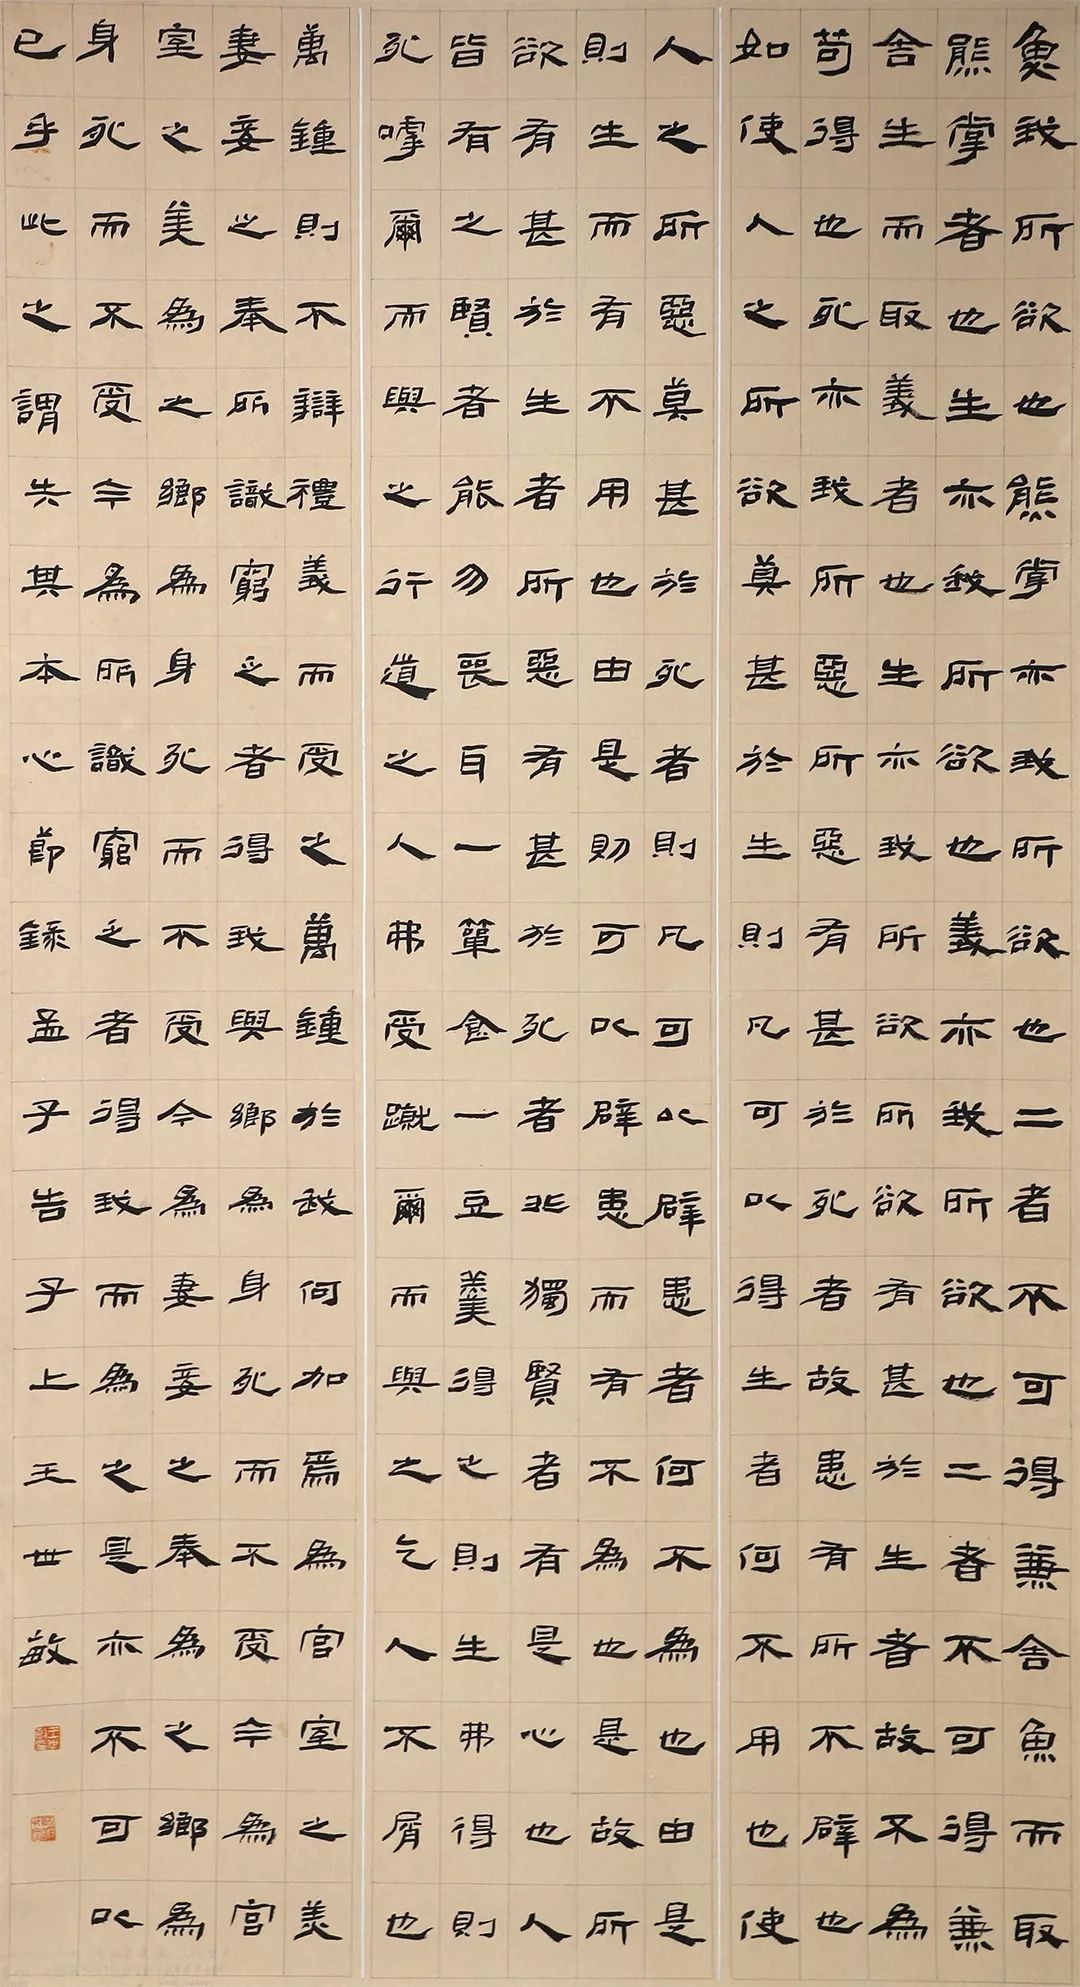 魚我所欲也熊掌亦我所欲也二者不可得兼舍魚而取
熊掌者也生亦我所欲也義亦我所欲也二者不可得兼
舍生而取義者也生亦我所欲所欲有甚於生者故不為
苟得也死亦我所惡所惡有甚於死者故患有所不辟也
如使人之所欲莫甚於生則凡可以得生者何不用也使
人之所惡莫甚於死者則凡可以辟患者何不為也由是
則生而有不用也由是則可以辟患而有不為也是故所
欲有甚於生者所惡有甚於死者非獨賢者有是心也人
皆有之賢者能勿喪耳一簞食一豆羹得之則生弗得則
死嘑爾而與之行道之人弗受蹴爾而與之乞人不屑也
萬鍾則不辯禮義而受之萬鍾於我何加焉為宮室之美
妻妾之奉所識窮乏者得我與鄉為身死而不受今為宮
室之美為之鄉為身死而不受今為妻妾之奉為之鄉為
身死而不受今為所識窮乏者得我而為之是亦不可以
已乎此之謂失其本心節錄孟子告子上王世敏